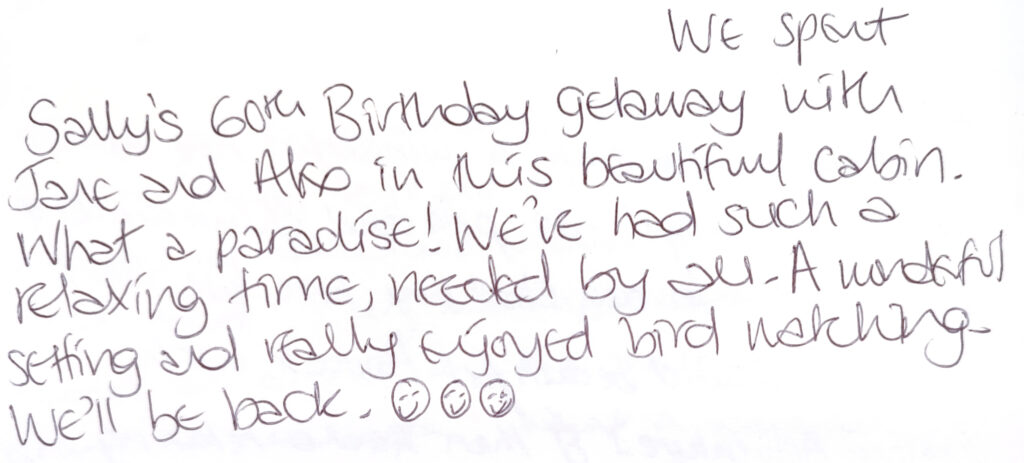 We spent
Sally's 60th Birthday getaway with
Jane and Alex in this beautiful cabin.
What a paradise! We've had such a
relaxing time, needed by all. A wonderful
setting and really enjoyed bird watching.
We'll be back. ☺☺☺